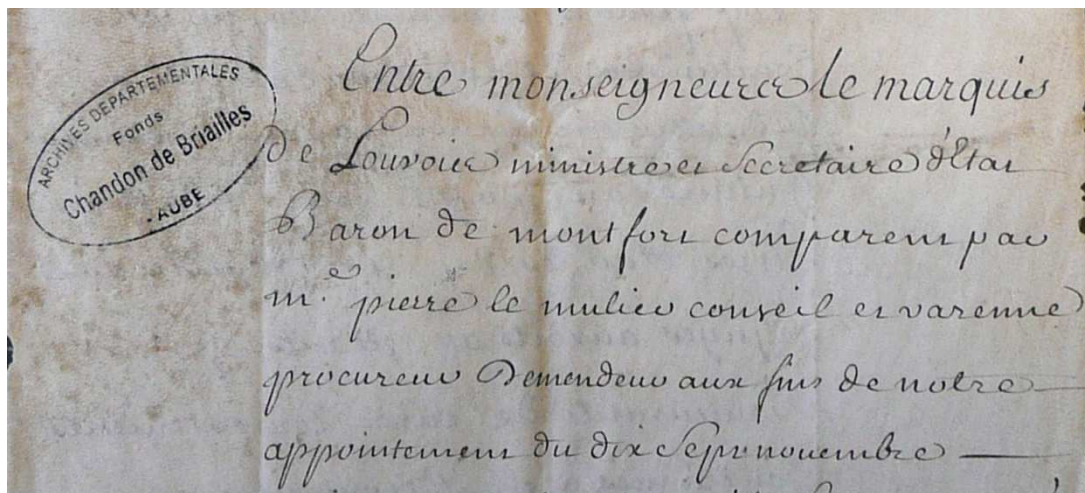 ARCHIVES DEPARTEMENTALES
Fonds
Chandon de Briailles
- AUBE -
Entre monseigneur le marquis
de Louvois ministre et Secretaire d'Etat
Baron de montfort comparent par
m.e pierre le mulier conseil et varenne
procureur Demendeur aux fins de notre
appointement du dix Sept novembre